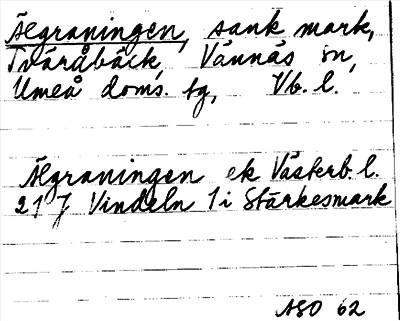 Älgraningen, sank mark,
Tväråbäck, Vännäs sn,
Umeå doms. tg, Vb. l.
Älgraningen ek Västerb. l.
21 J Vindeln 1 i Starkesmark
ASO 62